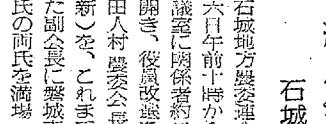 石城
石城地方農委連
六日午前十時か
議室に関係者約
開き、役員改選
田人村　農委会長
新）を、これま
た副会長に磐城
氏の両氏を満場